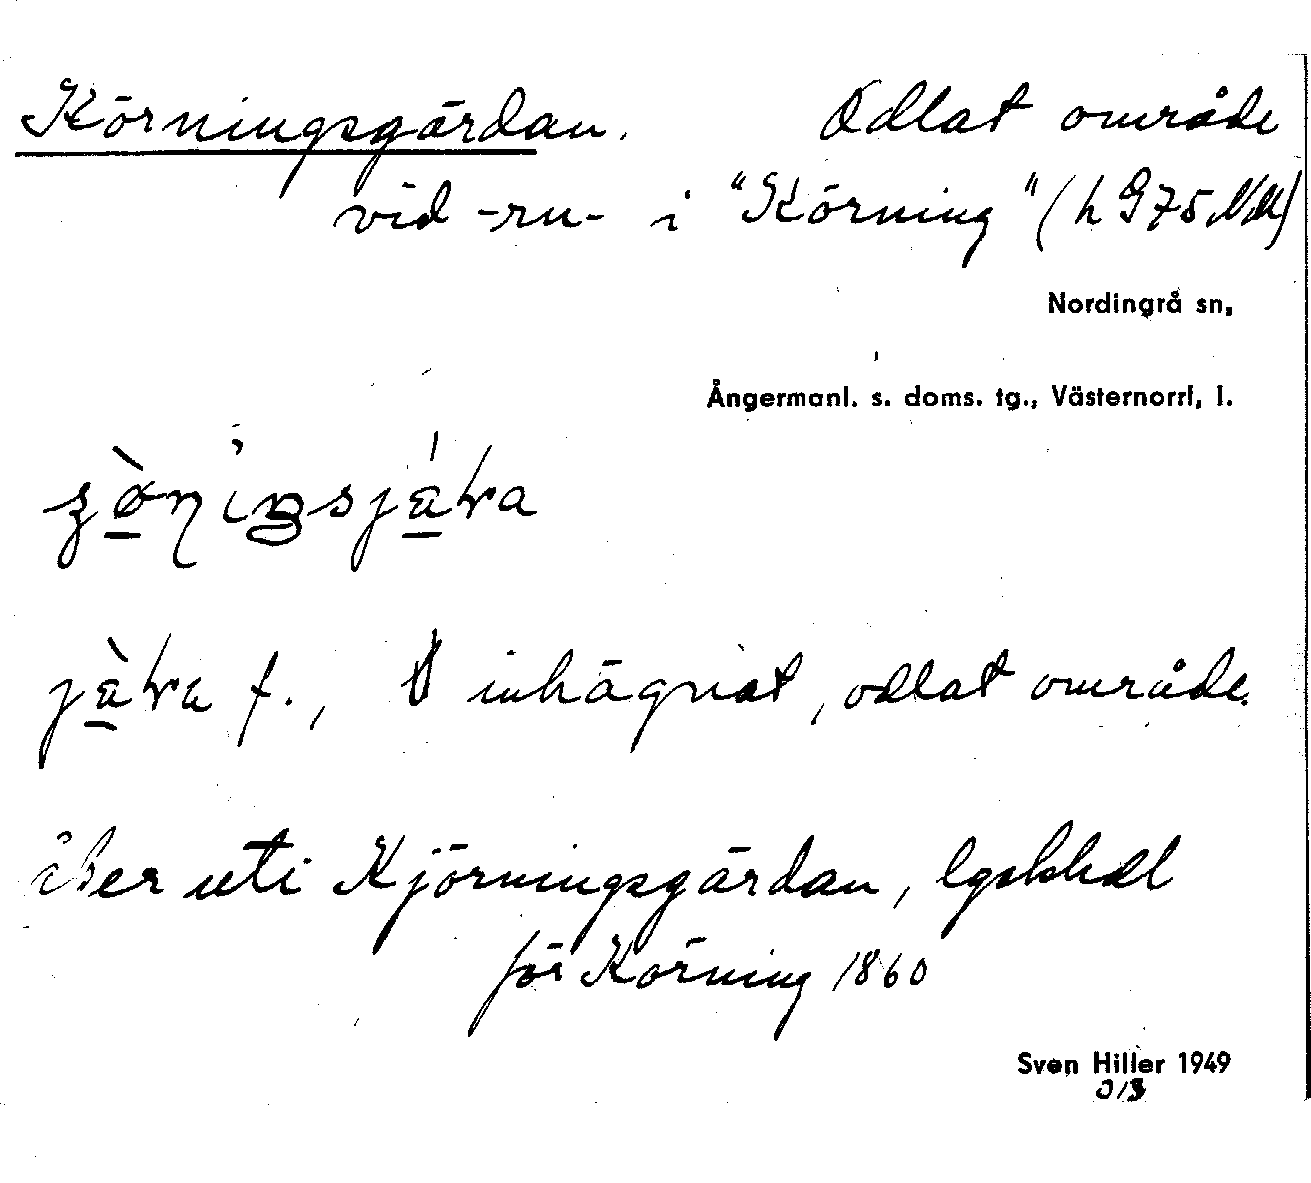 Körningsgärdan. Odlat område
vid -ru- i "Körning" (h 9 75 NM)
Nordingrå sn,
Ångermanl. s. doms. tg., Västernorrl, l.
j̀a̱ƕa f., inhägnat, odlat område.
åker uti Kjörningsgärdan,
för Körning 1860
Sven Hiller 1949